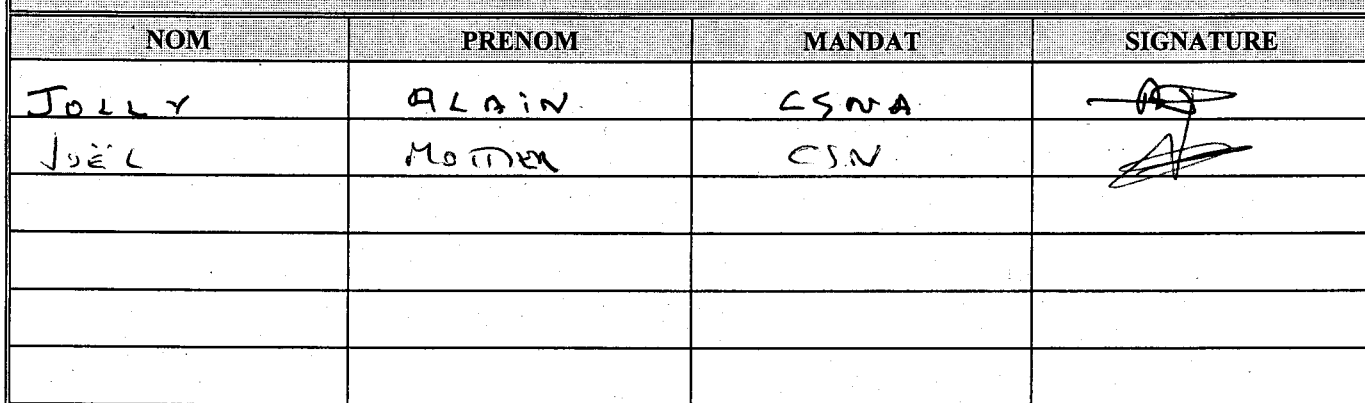 NOM PRENOM MANDAT SIGNATURE
JOLLY ALAIN CSNA
JOËL MOTTIER CSN